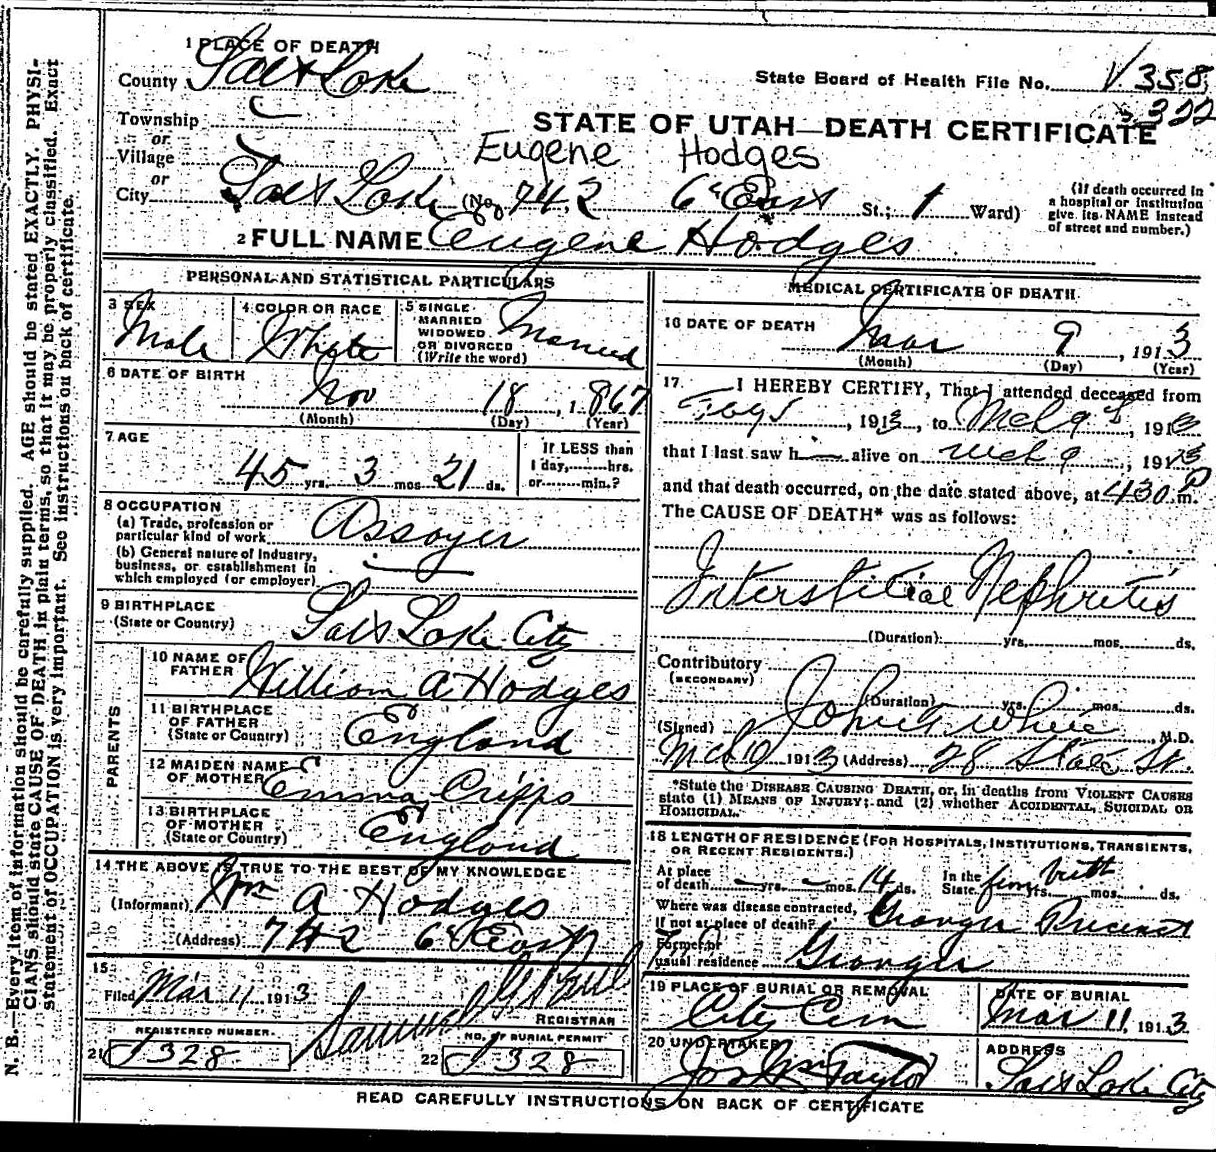 N. B.—Every item of information should be carefully supplied. AGE should be stated EXACTLY. PHYSI-
CIANS should state CAUSE OF DEATH in plain terms, so that it may be properly classified. Exact
statement of OCCUPATION is very important. See instructions on back of certificate.
1 PLACE OF DEATH
County Salt Lake
State Board of Health File No. 358
322
Township
or
Village
or
STATE OF UTAH—DEATH CERTIFICATE
Eugene Hodges
City Salt Lake (No. 742 6th East St.; 1 Ward)
(If death occurred in
a hospital or institution
give its NAME instead
of street and number.)
2 FULL NAME Eugene Hodges
PERSONAL AND STATISTICAL PARTICULARS
3 SEX Male
4 COLOR OR RACE White
5 SINGLE
MARRIED
WIDOWED
OR DIVORCED
(Write the word) Married
6 DATE OF BIRTH
Nov 18, 1867
(Month) (Day) (Year)
7 AGE
45 yrs. 3 mos. 21 ds.
If LESS than
1 day, hrs.
or min.?
8 OCCUPATION
(a) Trade, profession or
particular kind of work Assayer
(b) General nature of Industry,
business, or establishment in
which employed (or employer)
9 BIRTHPLACE
(State or Country) Salt Lake City
PARENTS
10 NAME OF
FATHER William A Hodges
11 BIRTHPLACE
OF FATHER
(State or Country) England
12 MAIDEN NAME
OF MOTHER Emma Cripps
13 BIRTHPLACE
OF MOTHER
(State or Country) England
14 THE ABOVE IS TRUE TO THE BEST OF MY KNOWLEDGE
(Informant) Wm A Hodges
(Address) 742 6th East
15
Filed Mar 11 1913 Samuel G Paul
REGISTRAR
REGISTERED NUMBER.
21 J328
NO. OF BURIAL PERMIT
22 J328
MEDICAL CERTIFICATE OF DEATH
16 DATE OF DEATH
Mar 9, 1913
(Month) (Day) (Year)
17. I HEREBY CERTIFY, That I attended deceased from
, 1913, to Mch 9th, 1913
that I last saw h alive on Mch 9, 1913
and that death occurred, on the date stated above, at 430 P m.
The CAUSE OF DEATH* was as follows:
Interstitial Nephritis
(Duration) yrs. mos. ds.
Contributory
(SECONDARY)
(Duration) yrs. mos. ds.
(Signed) John F White, M.D.
Mch 10 1913 (Address) 28 State St.
*State the DISEASE CAUSING DEATH, or, in deaths from VIOLENT CAUSES
state (1) MEANS OF INJURY; and (2) whether ACCIDENTAL, SUICIDAL OR
HOMICIDAL.
18 LENGTH OF RESIDENCE (FOR HOSPITALS, INSTITUTIONS, TRANSIENTS,
OR RECENT RESIDENTS.)
At place
of death — yrs. — mos. 14 ds.
In the
State from birth yrs. mos. ds.
Where was disease contracted,
If not at place of death? Granger Precinct
Former or
usual residence Granger
19 PLACE OF BURIAL OR REMOVAL
City Cem
DATE OF BURIAL
Mar 11, 1913
20 UNDERTAKER
Jos Wm Taylor
ADDRESS
Salt Lake City
READ CAREFULLY INSTRUCTIONS ON BACK OF CERTIFICATE